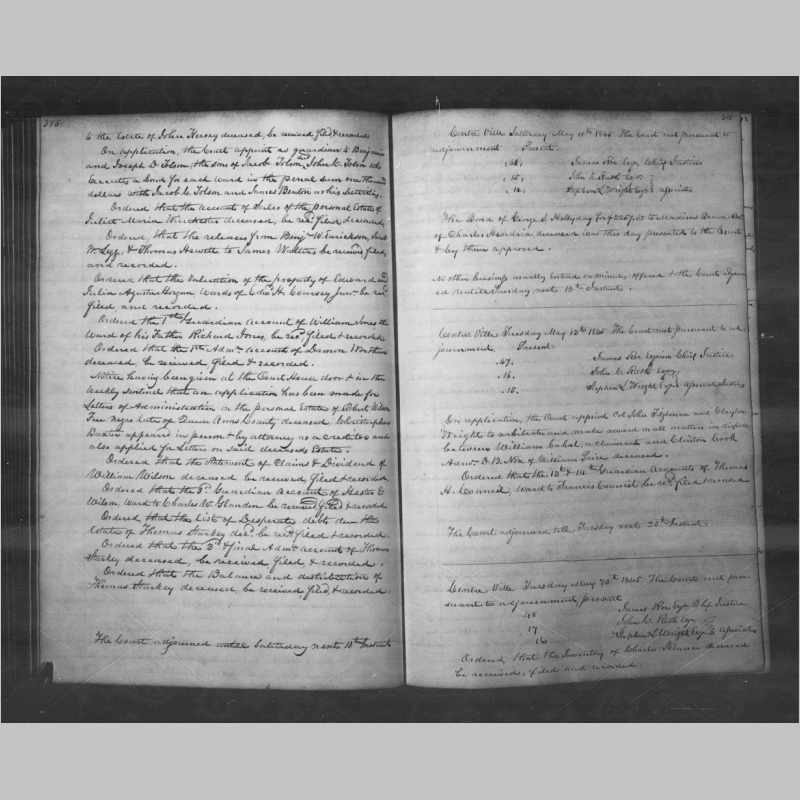 to the Estate of John Kersey deceased, be received filed & recorded
On application, the Court appoint as guardian to Benjamin
and Joseph O. Tolson, the sons of Jacob Tolson, John C. Tolson who
Executes a bond for each ward in the penal sum one thousand
dollars with Jacob C. Tolson and James Benton as his Securities.
Ordered that the account of Sales of the personal Estate of
Juliet Maria deceased, be recd. filed, & recorded
Ordered, that the releases from Benjn. W. Erickson,
W. Legg, & Thomas Hewett to James Walters be received filed,
and recorded.
Ordered that the Valuation of the property of Edward and
Julia Agustus Wards of Edwd. H. Coursey Junr. be recd.
filed, and recorded.
Ordered the 1st Guardian Account of William Jones the
Ward of his Father Richard Jones, be recd. filed & recorded
Ordered that the 1st Admrs. account of
deceased, be received filed & recorded.
Notice having been given at the Court House door & in the
weekly sentinel that an application has been made for
Letters of Administration on the personal Estate of Wilson
Free negro late of Queen Anns County deceased Christopher
Baxter appears in person & by attorney as a creditor and
also applies for Letters on said deceaseds Estate.
Ordered that the Statement of Claims & Dividend of
William Wilson deceased be received filed & recorded
Ordered that the 3d Guardian Account of Hester E
Wilson, Ward to Charles W. Glandon be received filed & recorded
Ordered that the List of Desperate debts due the
Estate of Thomas Starkey decd. be recd. filed & recorded.
Ordered that the 2d & final Admr. account of Thomas
Starkey deceased, be received filed, & recorded.
Ordered that the Balance and distribution of
Thomas Starkey deceased be received filed, & recorded
The Court adjourned until Saturday next 10th Instant
Centre Ville Saturday May 10th 1845 The Court met pursuant to
adjournment Present.
James Roe Esqr. Chief Justice
John C. Ruth Esqr.
Stephen L. Wright Esqr. associates
The Bond of George S. Hollyday for
of Charles Hardin deceased was this day presented to the Court
& by them approved.
No other business usually entered on minutes offered & the Court adjourn
ed until Tuesday next 13th Instant.
Centre Ville Tuesday May 13th 1845 The Court met pursuant to ad-
journment. Present.
47. James Roe Esquire Chief Justice
16. John C. Ruth Esqr.
15. Stephen L. Wright Esqr. associate Justices
On application, the Court appoint Col John Tilghman and Clayton
Wright to arbitrate and make award in all matters in dispute
between William Cahal, a claimant and Clinton Cook
Admr. D. B. Non of William deceased.
Ordered that the 13th & 14th Guardian Accounts of Thomas
H. Council, Ward to Francis Council be recd. filed & recorded
The Court adjourned till Tuesday next 20th Instant.
Centre Ville Tuesday May 20th 1845 The Court met pur-
suant to adjournment, present
48 James Roe Esqr. Chf Justice
17 John C. Ruth Esqr.
16 Stephen L. Wright Esqr. associates
Ordered, that the Inventory of Charles deceased
be received, filed and recorded.